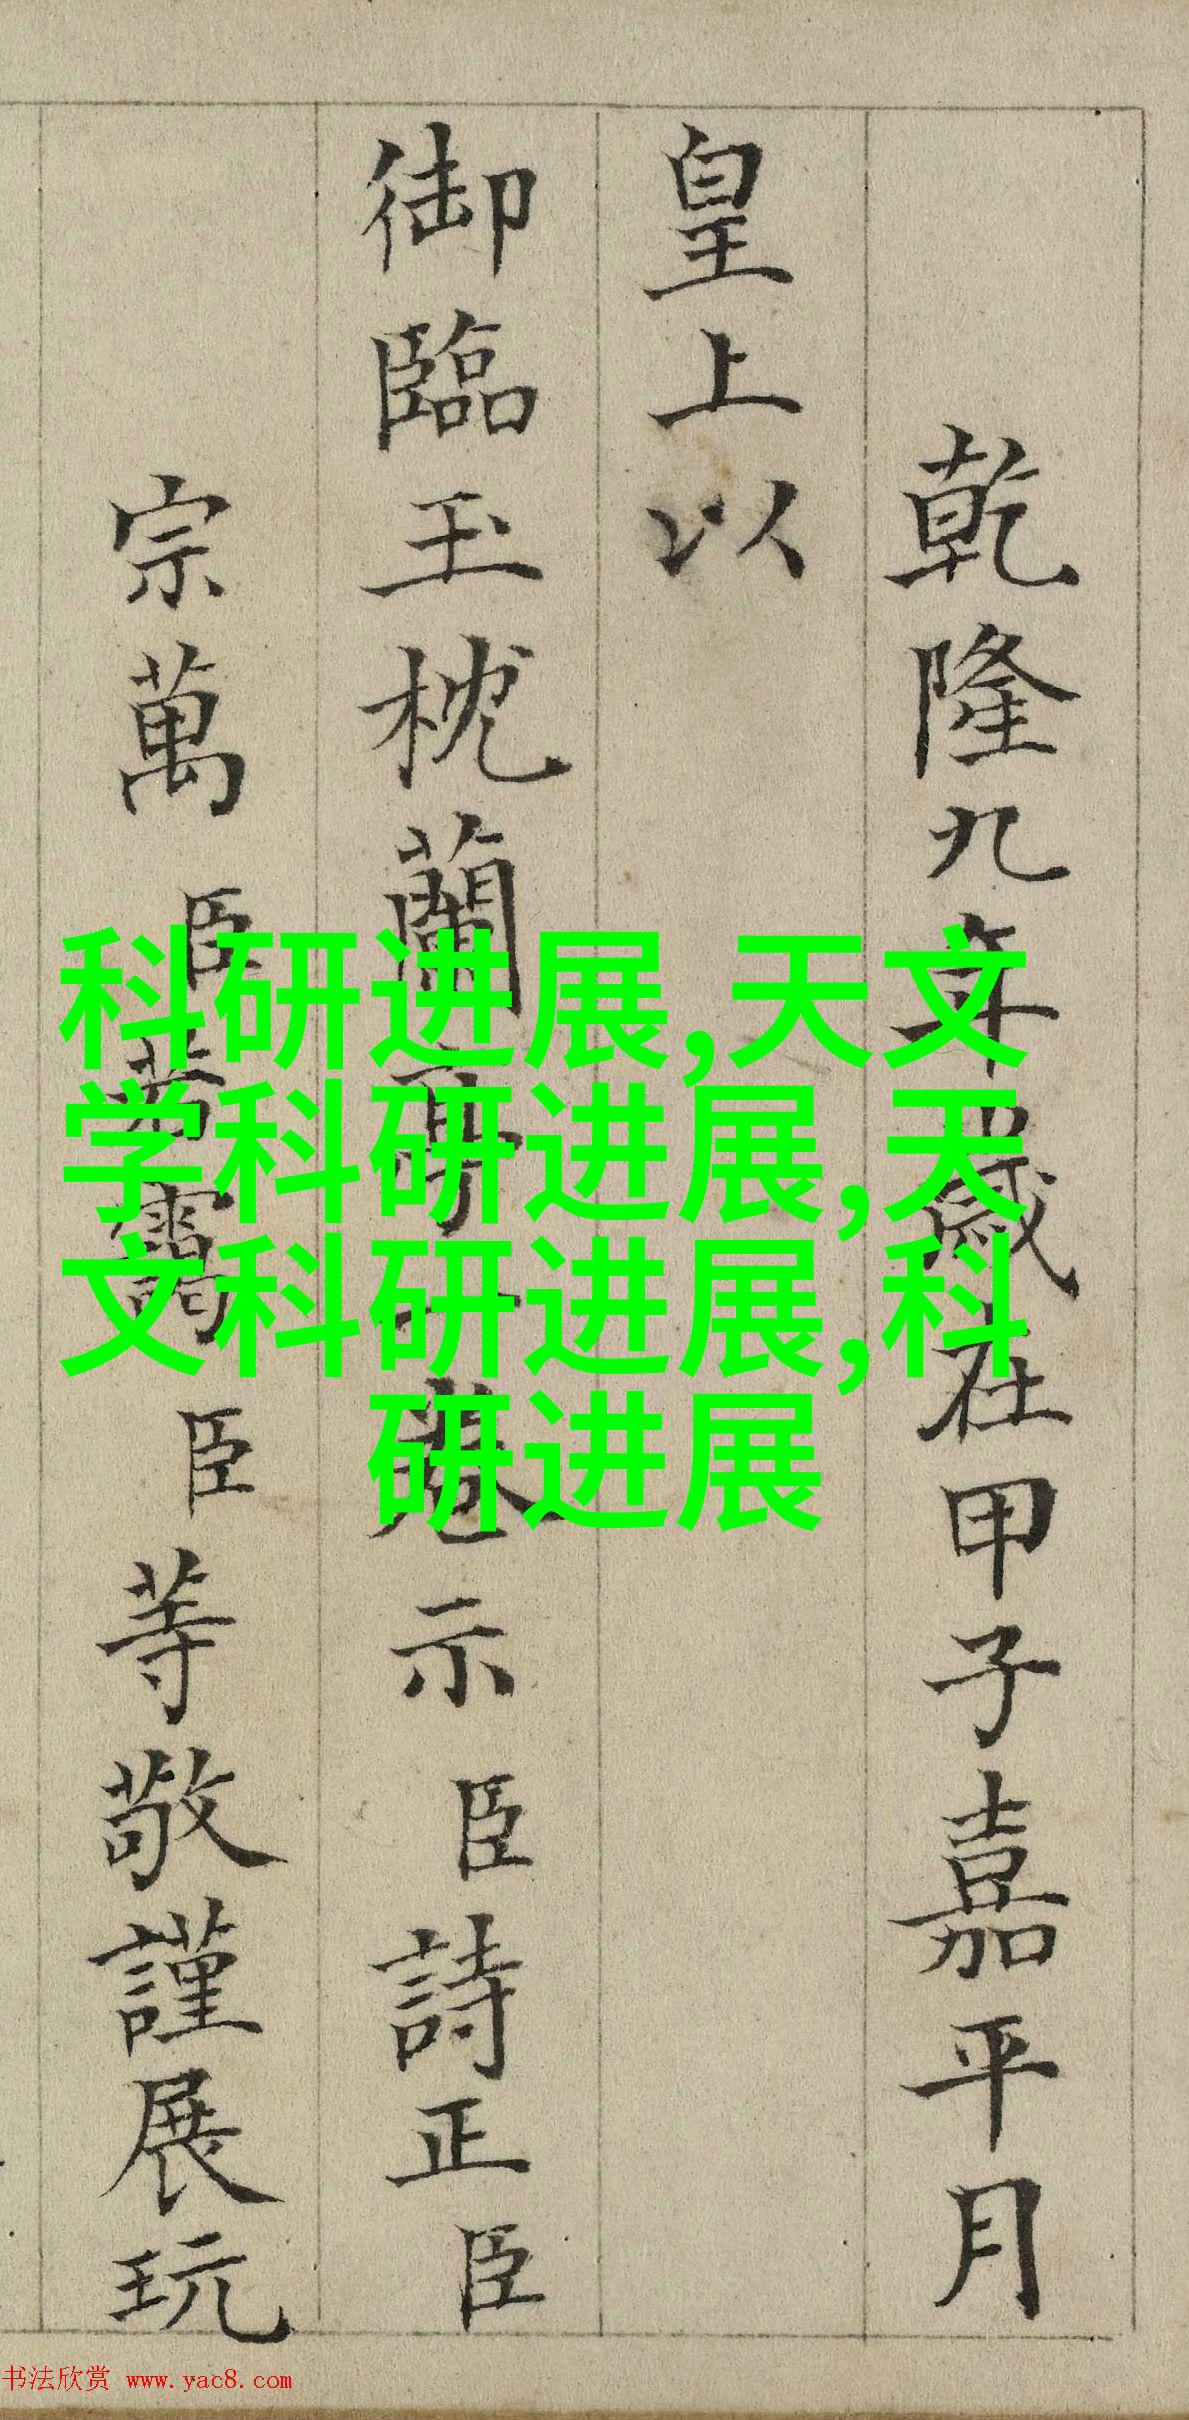 乾隆九年歲在甲子嘉平月
皇上以
御臨玉枕蘭亭一卷示臣詩正臣
宗萬臣若靄臣等敬謹展玩
科研进展,天文
学科研进展,天
文科研进展,科
研进展
书法欣赏 www.yac8.com